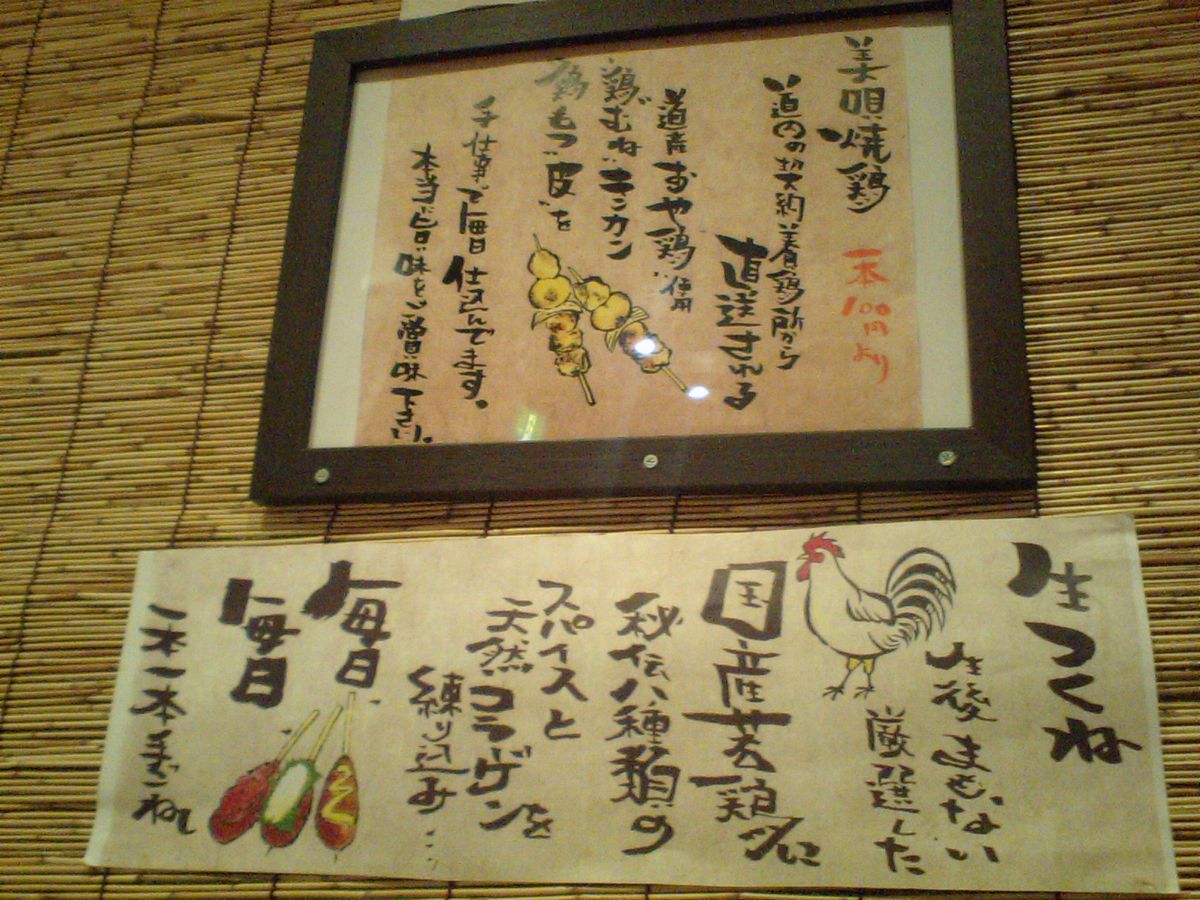 美唄焼鶏
一本100円より
道内の契約養鶏所から
直送される
道産おや鶏使用
鶏むねキンカン
鶏もつ皮を
手仕事で毎日仕込んでます。
本当に旨い味をご賞味下さい。
生つくね
生後まもない
厳選した
国産若鶏に
秘伝八種類の
スパイスと
天然コラーゲンを
練り込み…
毎日
毎日
一本一本手ごねし